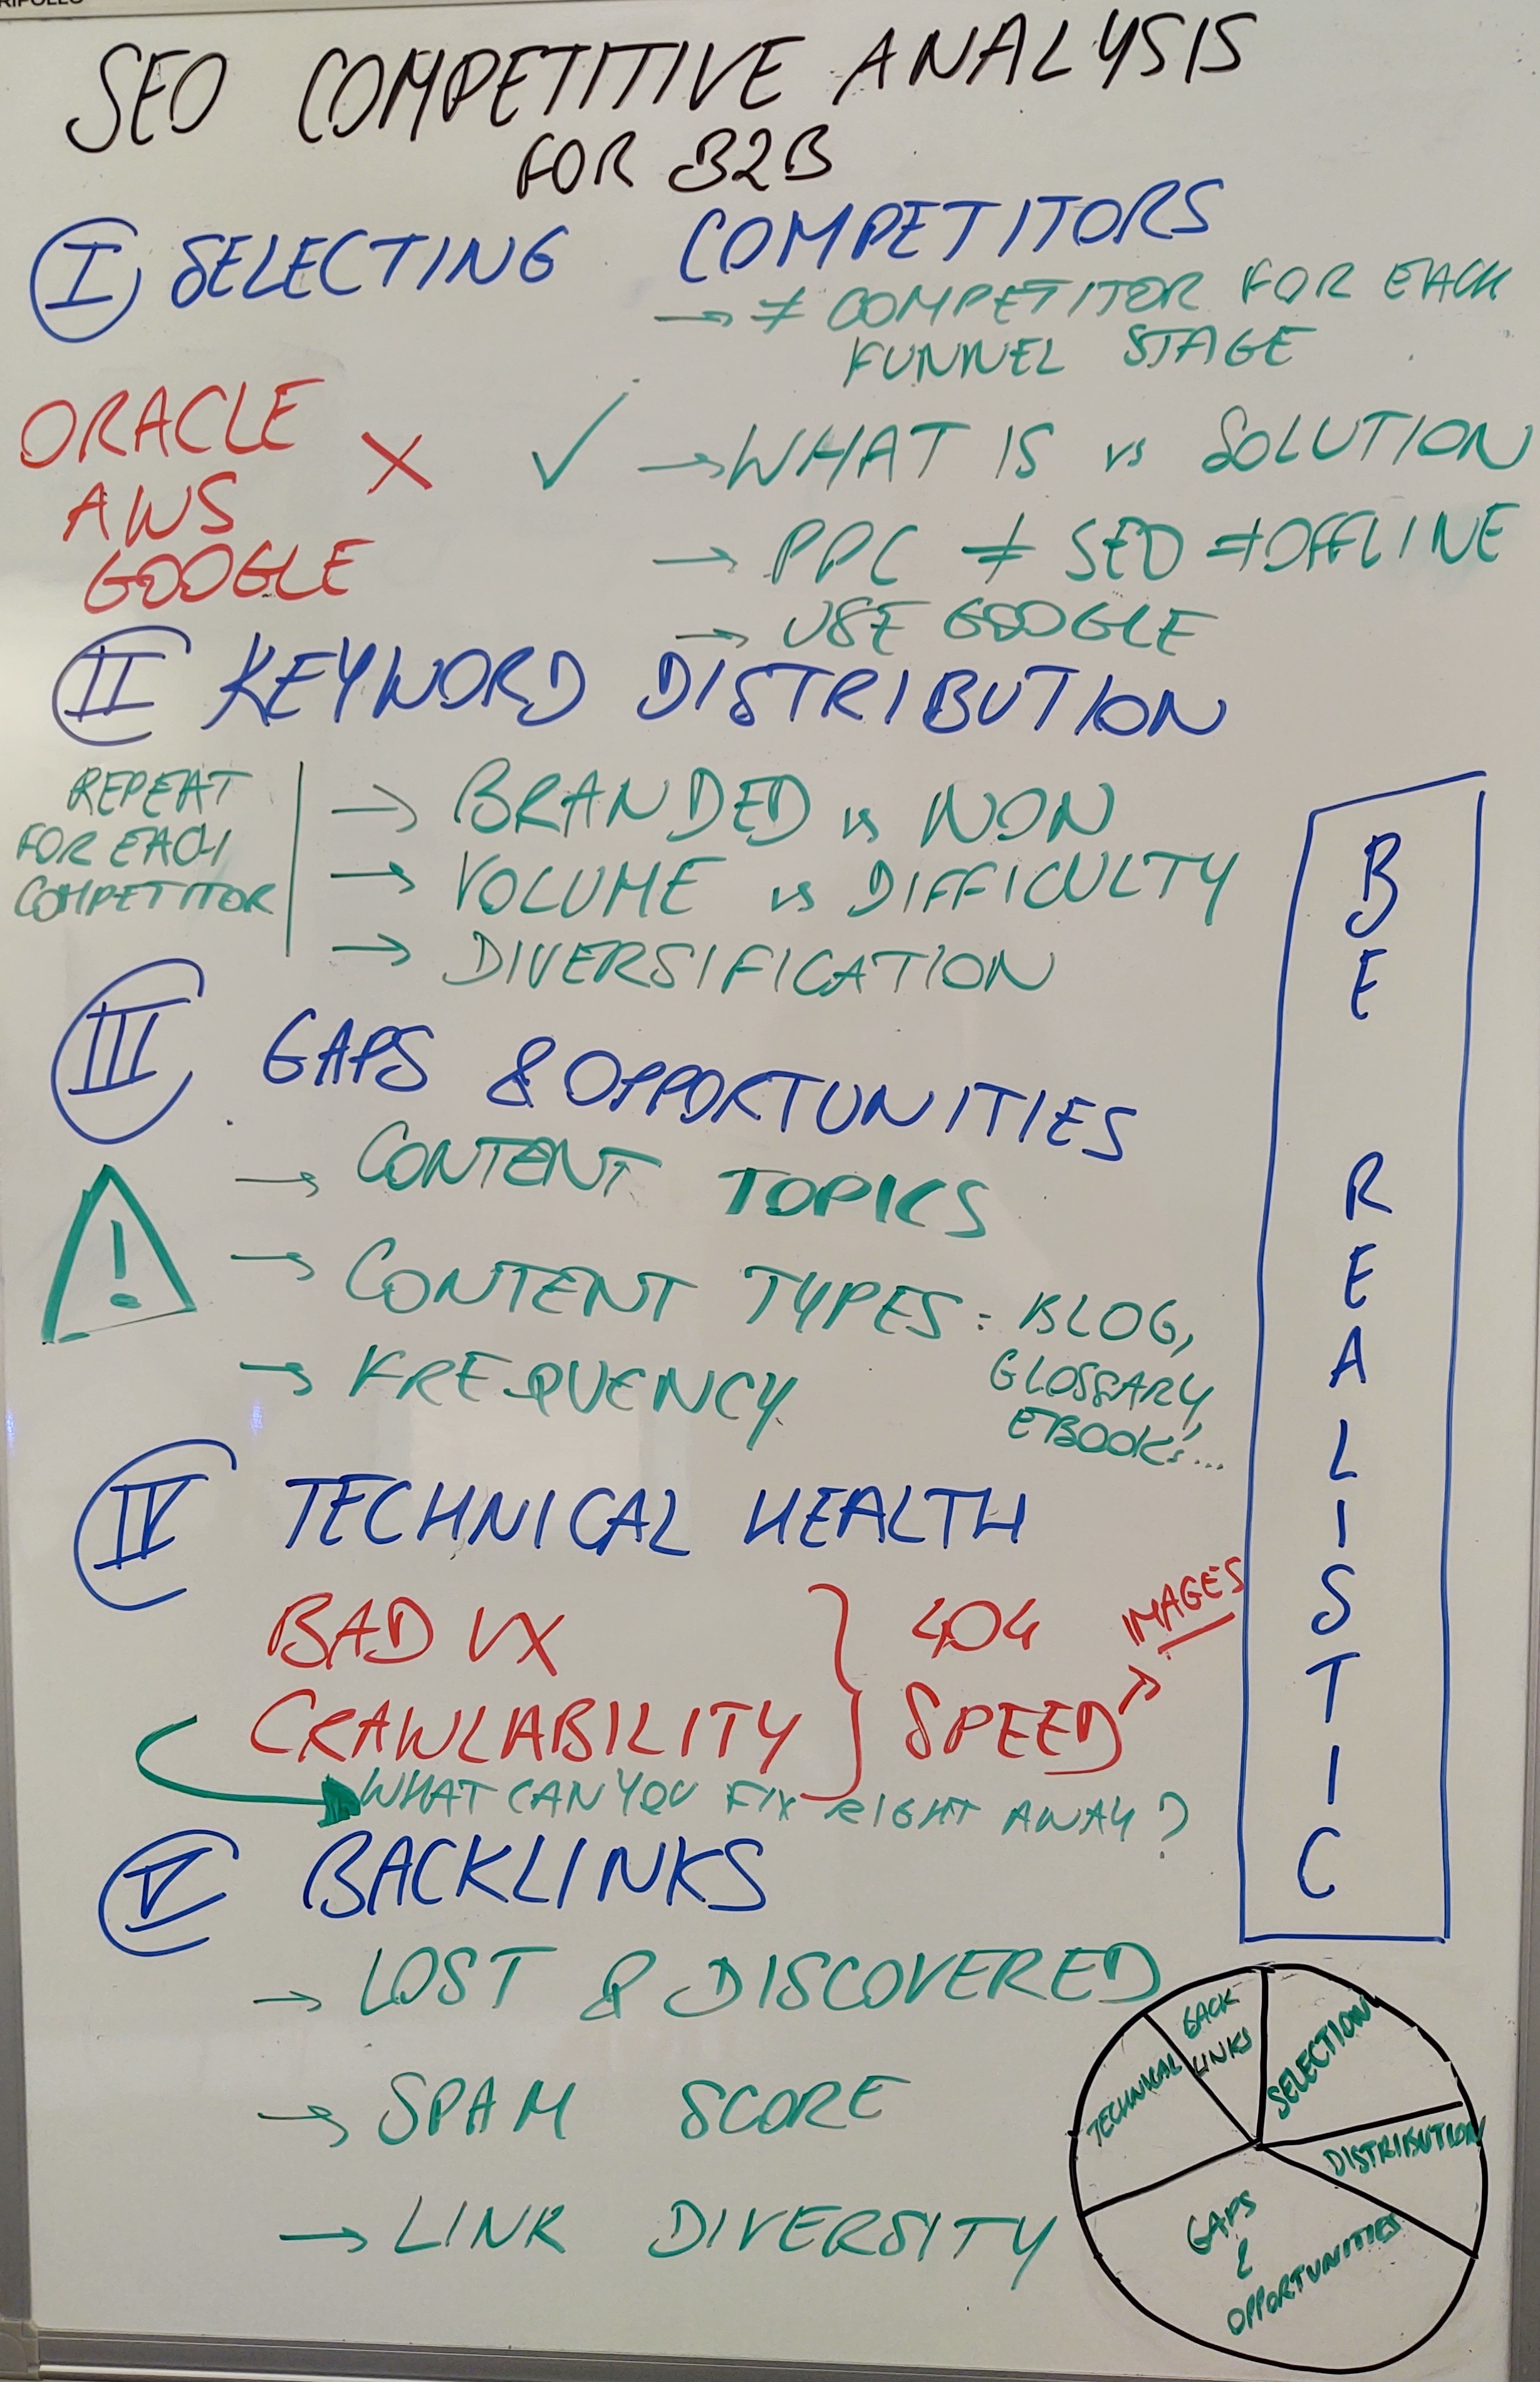 SEO COMPETITIVE ANALYSIS
FOR B2B
I SELECTING COMPETITORS
→ ≠ COMPETITOR FOR EACH
FUNNEL STAGE
ORACLE
AWS
GOOGLE
X ✓
→ WHAT IS vs SOLUTION
→ PPC ≠ SEO ≠ OFFLINE
→ USE GOOGLE
II KEYWORD DISTRIBUTION
REPEAT
FOR EACH
COMPETITOR
→ BRANDED vs NON
→ VOLUME vs DIFFICULTY
→ DIVERSIFICATION
III GAPS & OPPORTUNITIES
!
→ CONTENT TOPICS
→ CONTENT TYPES: BLOG,
GLOSSARY,
EBOOKS...
→ FREQUENCY
IV TECHNICAL HEALTH
BAD UX
CRAWLABILITY
404
SPEED → IMAGES
→ WHAT CAN YOU FIX RIGHT AWAY?
V BACKLINKS
→ LOST & DISCOVERED
→ SPAM SCORE
→ LINK DIVERSITY
BE REALISTIC
BACK
LINKS
SELECTION
TECHNICAL
DISTRIBUTION
GAPS
&
OPPORTUNITIES